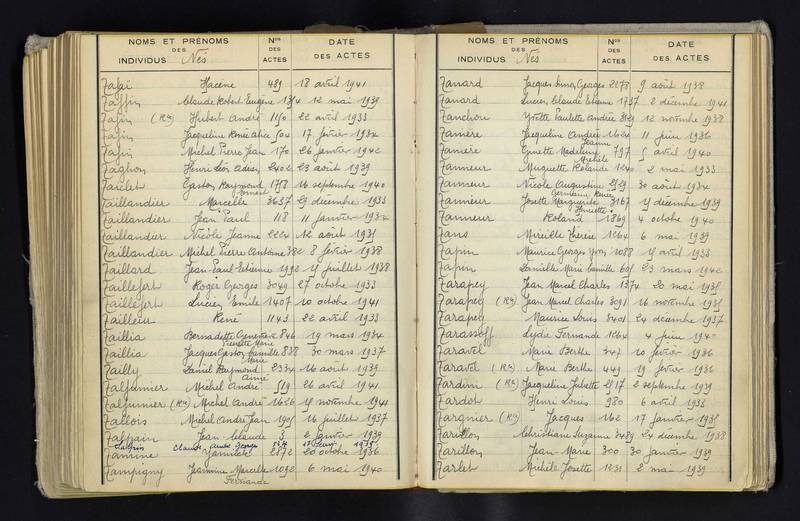 NOMS ET PRÉNOMS
DES
INDIVIDUS Nés
Nos
DES
ACTES
DATE
DES ACTES
Hacène 489 18 avril 1941
Taffin Claude Robert Eugène 12 mai 1939
Tafin (Ra) Hubert André 22 avril 1933
Tafin Jacqueline Renée Alice 17 février 1934
Tafin Michel Pierre Jean 170 26 janvier 1942
Taghon Henri Léon 2402 23 août 1939
Gaston Raymond 16 septembre 1940
Taillandier Marcelle 3637 29 décembre 1933
Taillandier Jean Paul 118 11 janvier 1934
Taillandier Nicole Jeanne 2224 12 août 1935
Taillandier Michel Pierre Antoine 382 8 février 1938
Taillard Jean Paul Etienne 1992 juillet 1938
Taillefert Roger Georges 3049 27 octobre 1933
Taillefert Lucien Emile 1407 10 octobre 1941
Tailleur René 1143 22 avril 1933
Taillia Bernadette Geneviève 846 19 mars 1934
Pierrette Marie
Taillia Jacques Gaston Camille 838 30 mars 1937
Marie
Tailly Daniel Raymond 2334 16 août 1939
Aimé
Talfumier Michel André 519 26 avril 1941
Talfumier (Ra) Michel André 1656 novembre 1941
Tallois Michel André Jean 1905 16 juillet 1937
Jean Claude 3 2 janvier 1939
Claude André Georges
Tamine Jannick 2872 20 octobre 1936
Tampigny Jeannine Marcelle 1092 6 mai 1940
Fernande
NOMS ET PRÉNOMS
DES
INDIVIDUS Nés
Nos
DES
ACTES
DATE
DES ACTES
Tanard Jacques Georges 2278 9 août 1938
Tanard Lucien Claude Etienne 1737 2 décembre 1941
Tanchou Yvette Paulette Andrée 3129 12 novembre 1938
Tanière Jacqueline Andrée 1624 11 juin 1936
Jeanne
Tanière Ginette Madeleine 797 5 avril 1940
Michèle
Tanneur Muguette Rolande 1240 2 mai 1933
Tanneur Nicole Augustine 30 août 1934
Germaine Renée
Tanneur Josette Marguerite 3167 décembre 1939
Henriette
Tanneur Roland 1869 4 octobre 1940
Tans Mireille Thérèse 1264 6 mai 1939
Tapin Maurice Georges Yvon 1088 avril 1933
Tapin Danielle Marie Camille 605 23 mars 1942
Tarapey Jean Marcel Charles 1374 20 mai 1935
Tarapey (Ra) Jean Marcel Charles 3091 16 novembre 1935
Tarapey Maurice Louis 3401 24 décembre 1937
Tarassoff Lydie Fernande 1264 4 juin 1940
Taravel Marie Berthe 347 10 février 1936
Taravel (Ra) Marie Berthe 449 19 février 1936
Tardini (Ra) Jacqueline Juliette 2517 2 septembre 1939
Tardot Henri Louis 980 6 avril 1933
Targnier (Ra) Jacques 162 17 janvier 1935
Tarillon Christiane Suzanne 3489 24 décembre 1938
Tarillon Jean Marie 300 30 janvier 1939
Tarlet Michèle Josette 1231 2 mai 1939